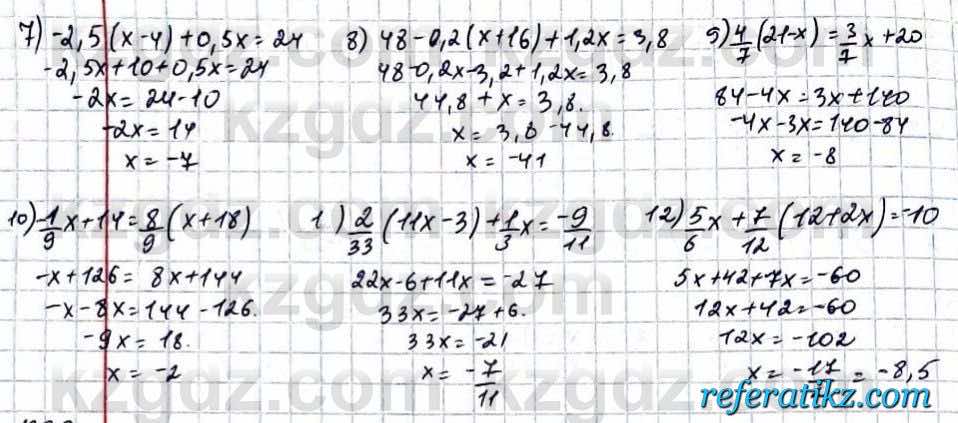 7) -2,5(x-4)+0,5x=24
-2,5x+10+0,5x=24
-2x=24-10
-2x=14
x=-7
8) 48-0,2(x+16)+1,2x=3,8
48-0,2x-3,2+1,2x=3,8
44,8+x=3,8.
x=3,8-44,8.
x=-41
9) 4/7(21-x)=3/7x+20
84-4x=3x+140
-4x-3x=140-84
x=-8
10) -1/9x+14=8/9(x+18)
-x+126=8x+144
-x-8x=144-126.
-9x=18.
x=-2
1) 2/33(11x-3)+1/3x=-9/11
22x-6+11x=-27
33x=-27+6.
33x=-21
x=-7/11
12) 5/6x+7/12(12+2x)=-10
5x+42+7x=-60
12x+42=-60
12x=-102
x=-17/=-8,5
kzgdz.com
referatikz.com